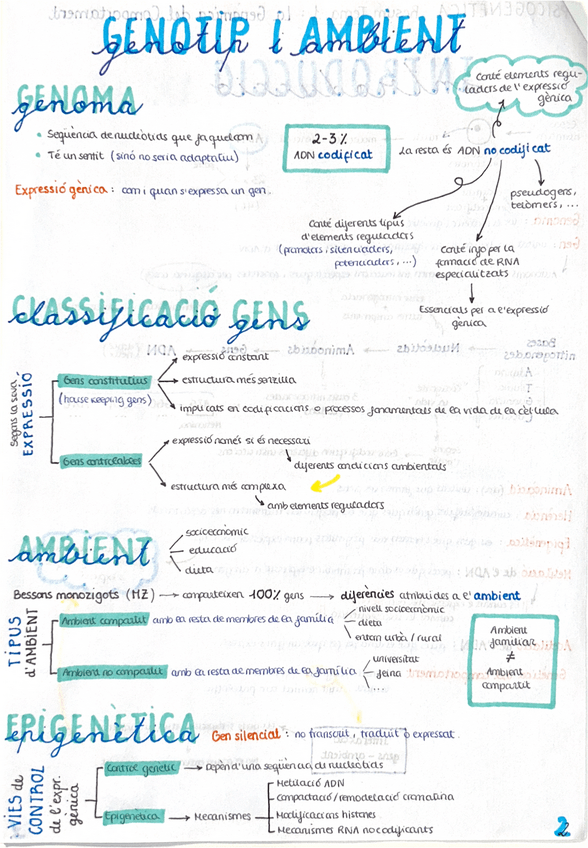 GENOTIP I AMBIENT
genotip i ambient
GENOMA
genoma
• Seqüència de nucleòtids que ja quedam
• Té un sentit (sinó no seria adaptatiu)
2-3%
ADN codificat
La resta és ADN no codificat
Conté elements regu-
ladors de l'expressió
gènica
Expressió gènica: com i quan s'expressa un gen.
pseudogens,
telòmers, ...
Conté diferents tipus
d'elements reguladors
(promotors i silenciadors,
potenciadors, ...)
Conté info per la
formació de RNA
especialitzats
Essencials per a l'expressió
gènica
CLASSIFICACIÓ GENS
classificació gens
Segons la seva
EXPRESSIÓ
Gens constitutius
(house keeping gens)
expressió constant
estructura més senzilla
implicats en codificacions o processos fonamentals de la vida de la cèl·lula
Gens controlables
expressió només si és necessari
diferents condicions ambientals
estructura més complexa
amb elements reguladors
AMBIENT
ambient
socioeconòmic
educació
dieta
Bessons monozigots (MZ) → comparteixen 100% gens → diferències atribuïdes a l'ambient
TIPUS
D'AMBIENT
Ambient compartit amb la resta de membres de la família
nivell socioeconòmic
dieta
entorn urbà / rural
Ambient no compartit amb la resta de membres de la família
universitat
feina
......
Ambient
familiar
≠
Ambient
compartit
EPIGENÈTICA
epigenètica
Gen silencial: no transcrit, traduït o expressat.
VIES de
CONTROL
de l'expr.
gènica
Control genètic → Depèn d'una seqüència de nucleòtids
Epigenètica → Mecanismes
Metilació ADN
Compactació/remodelació cromatina
Modificacions histones
Mecanismes RNA no codificants
2